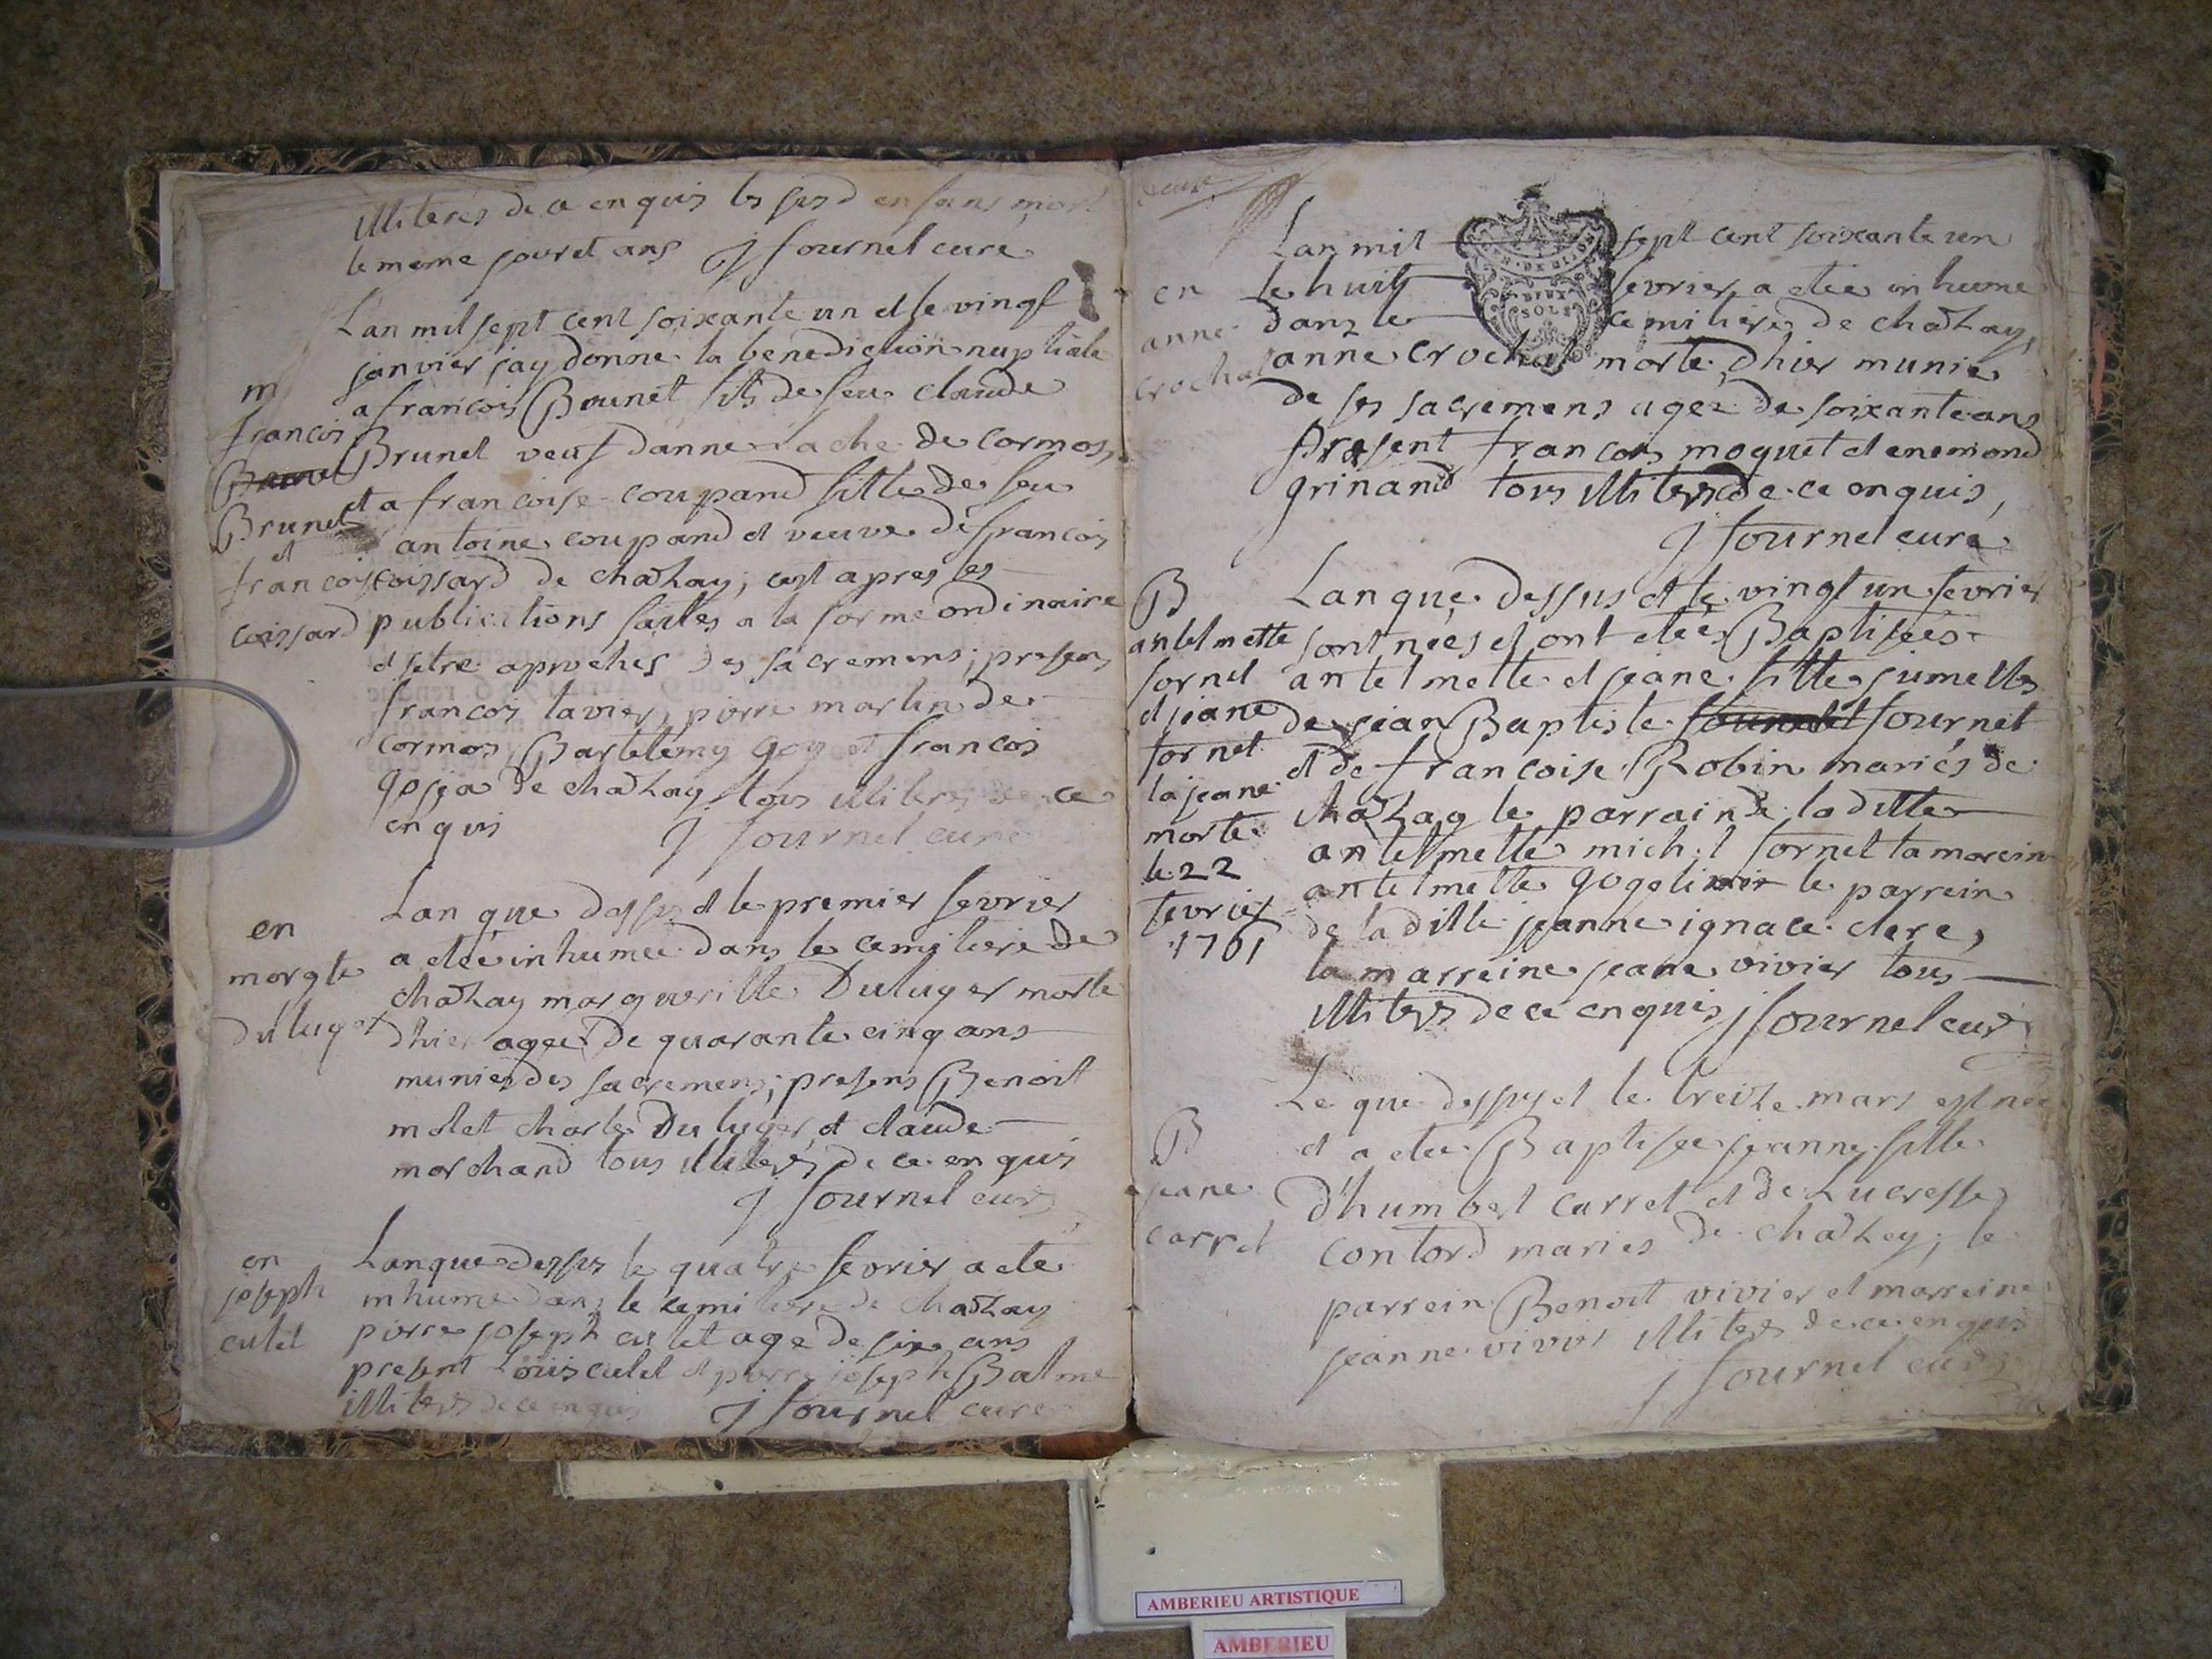 illiterés de ce enquis les susd enfans mort
le meme jour et ans J fournel curé
Lan mil sept cent soixante un et le vingt
janvier jay donné la benediction nuptiale
m
a francois Brunet fils de feu claude
francois
Brunet veuf danne lache de cormos,
Brunet
et a francoise coupand fille de feu
Brunet
antoine coupand et veuve de francois
et
francoise
coissard de chaZay, cest apres les
coissard
publications faites a la forme ordinaire
et setre aprochés des sacremens; presens
francois tavier, pierre martin de
cormos, Bartelemy goy et francois
gojea de chaZay tous illiterés de ce
enquis J fournel curé
Lan que dessus et le premier fevrier
en
a eteé inhumeé dans le cemitiere de
morgte
chaZay margueritte Duluger morte
duluget
dhier ageé de quarante cinq ans
munie des sacremens; presens Benoit
molet charle Duluger, et claude
marchand tous illiterés de ce enquis
J fournel curé
en
Lan que dessus le quatre fevrier a ete
joseph
inhumé dans le cemitiere de chaZay
culet
pierre joseph culet age de six ans
present Louis culet et pierre joseph Balme
illiterés de ce enquis J fournel curé
Lan mil sept cent soixante un
en
le huit fevrier a eteé inhumé
GEN · DE DI
DEUX
SOLS
anne
dans le cemitiere de chaZay,
crochat
anne crochat morte dhier munie
de ses sacremens ageé de soixante ans
present francois moquet et enemond
grinand tous illiterés de ce enquis,
J fournel curé
B
Lan que dessus et le vingt un fevrier
antelmette
sont neés et ont eteés Baptiseés
fornet
antelmette et jeane fille jumelles
et jeane
de jean Baptiste fournet
fornet
et de francoise Robin mariés de
la jeane
chaZay le parrain de laditte
morte
antelmette michel fornet la mareine
le 22
antelmette gogeli le parrein
fevrier
de laditte jeanne ignace clere,
1761
la marreine jeane vivier tous
illiterés de ce enquis J fournel curé
Le que dessus et le treize mars est née
B
et a eteé Baptiseé jeanne fille
jeane
d'humbert carret et de Lucresse
carret
contord mariés de chaZey; le
parrein Benoit vivier et marreine
jeanne vivier illiterés de ce enquis
J fournel curé
AMBERIEU ARTISTIQUE
AMBERIEU